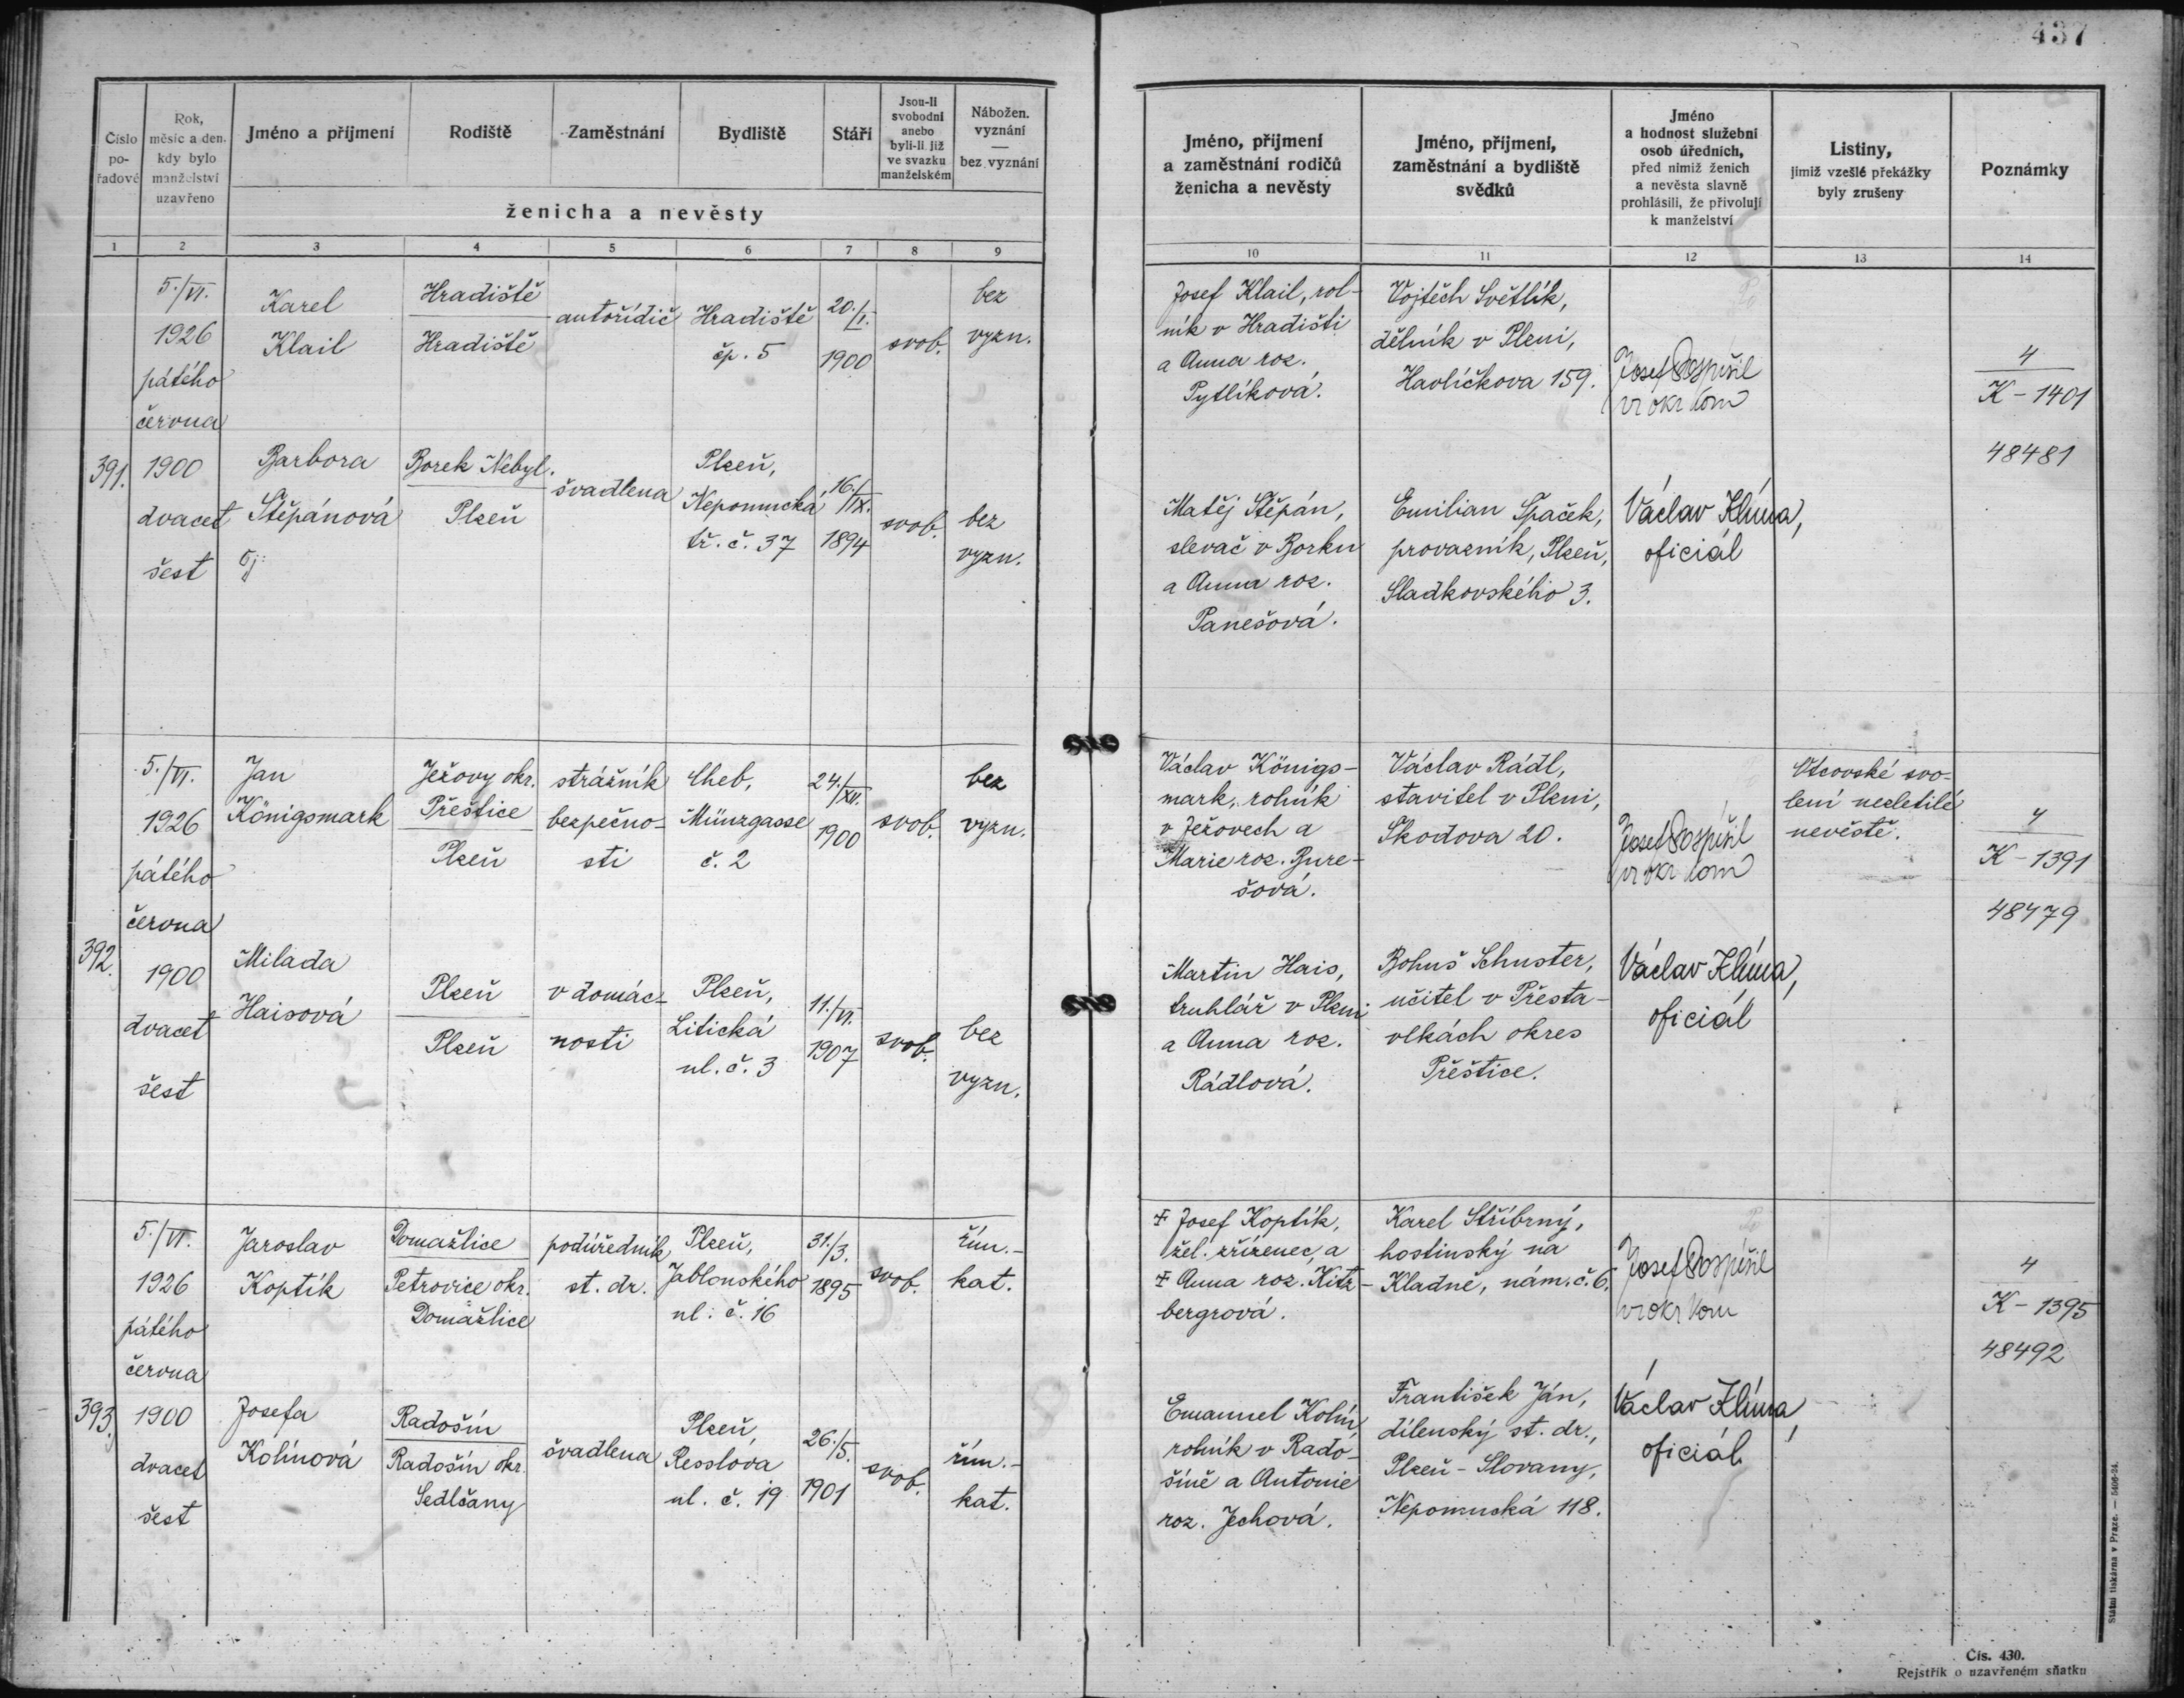 437
Číslo
po-
řadové
Rok,
měsíc a den,
kdy bylo
manželství
uzavřeno
Jméno a příjmení
Rodiště
Zaměstnání
Bydliště
Stáří
Jsou-li
svobodni
anebo
byli-li již
ve svazku
manželském
Nábožen.
vyznání
—
bez vyznání
ženicha a nevěsty
Jméno, příjmení
a zaměstnání rodičů
ženicha a nevěsty
Jméno, příjmení,
zaměstnání a bydliště
svědků
Jméno
a hodnost služební
osob úředních,
před nimiž ženich
a nevěsta slavně
prohlásili, že přivolují
k manželství
Listiny,
jimiž vzešlé překážky
byly zrušeny
Poznámky
1 2 3 4 5 6 7 8 9 10 11 12 13 14
391.
5./VI.
1926
pátého
června
1900
dvacet
šest
Karel
Klail
Hradiště
Hradiště
autořídič
Hradiště
čp. 5
20./I.
1900
svob.
bez
vyzn.
Josef Klail, rol-
ník v Hradišti
a Anna roz.
Pytlíková.
Vojtěch Světlík,
dělník v Plzni,
Havlíčkova 159.
Josef Pospíšil
4
K-1401
48481
Barbora
Štěpánová
Borek Nebyl.
Plzeň
švadlena
Plzeň,
Nepomucká
tř. č. 37
16./IX.
1894
svob.
bez
vyzn.
Matěj Štěpán,
slevač v Borku
a Anna roz.
Panešová.
Emilian Špaček,
provazník, Plzeň,
Sladkovského 3.
Václav Klíma,
oficiál
392.
5./VI.
1926
pátého
června
1900
dvacet
šest
Jan
Königsmark
Ježovy okr.
Přeštice
Plzeň
strážník
bezpečno-
sti
Cheb,
Münzgasse
č. 2
24./XII.
1900
svob.
bez
vyzn.
Václav Königs-
mark, rolník
v Ježovech a
Marie roz. Bure-
šová.
Václav Rádl,
stavitel v Plzni,
Škodova 20.
Josef Pospíšil
Otcovské svo-
lení nezletilé
nevěstě.
4
K-1391
48479
Milada
Haisová
Plzeň
Plzeň
v domác-
nosti
Plzeň,
Litická
ul. č. 3
11./VI.
1907
svob.
bez
vyzn.
Martin Hais,
truhlář v Plzni
a Anna roz.
Rádlová.
Bohuš Schuster,
učitel v Přesta-
vlkách okres
Přeštice.
Václav Klíma,
oficiál
393.
5./VI.
1926
pátého
června
1900
dvacet
šest
Jaroslav
Koptík
Domažlice
Petrovice okr.
Domažlice
podúředník
st. dr.
Plzeň,
Jablonského
ul. č. 16
31./3.
1895
svob.
řím.-
kat.
‡ Josef Koptík,
žel. zřízenec, a
‡ Anna roz. Kitz-
bergrová.
Karel Stříbrný,
hostinský na
Kladně, nám. č. 6.
Josef Pospíšil
4
K-1395
48492
Josefa
Kolínová
Radošín
Radošín okr.
Sedlčany
švadlena
Plzeň,
Resslova
ul. č. 19
26./5.
1901
svob.
řím.-
kat.
Emanuel Kolín,
rolník v Rado-
šíně a Antonie
roz. Jechová.
František Ján,
dílenský st. dr.,
Plzeň - Slovany,
Nepomucká 118.
Václav Klíma,
oficiál
Státní tiskárna v Praze. — 5406-24.
Čís. 430.
Rejstřík o uzavřeném sňatku